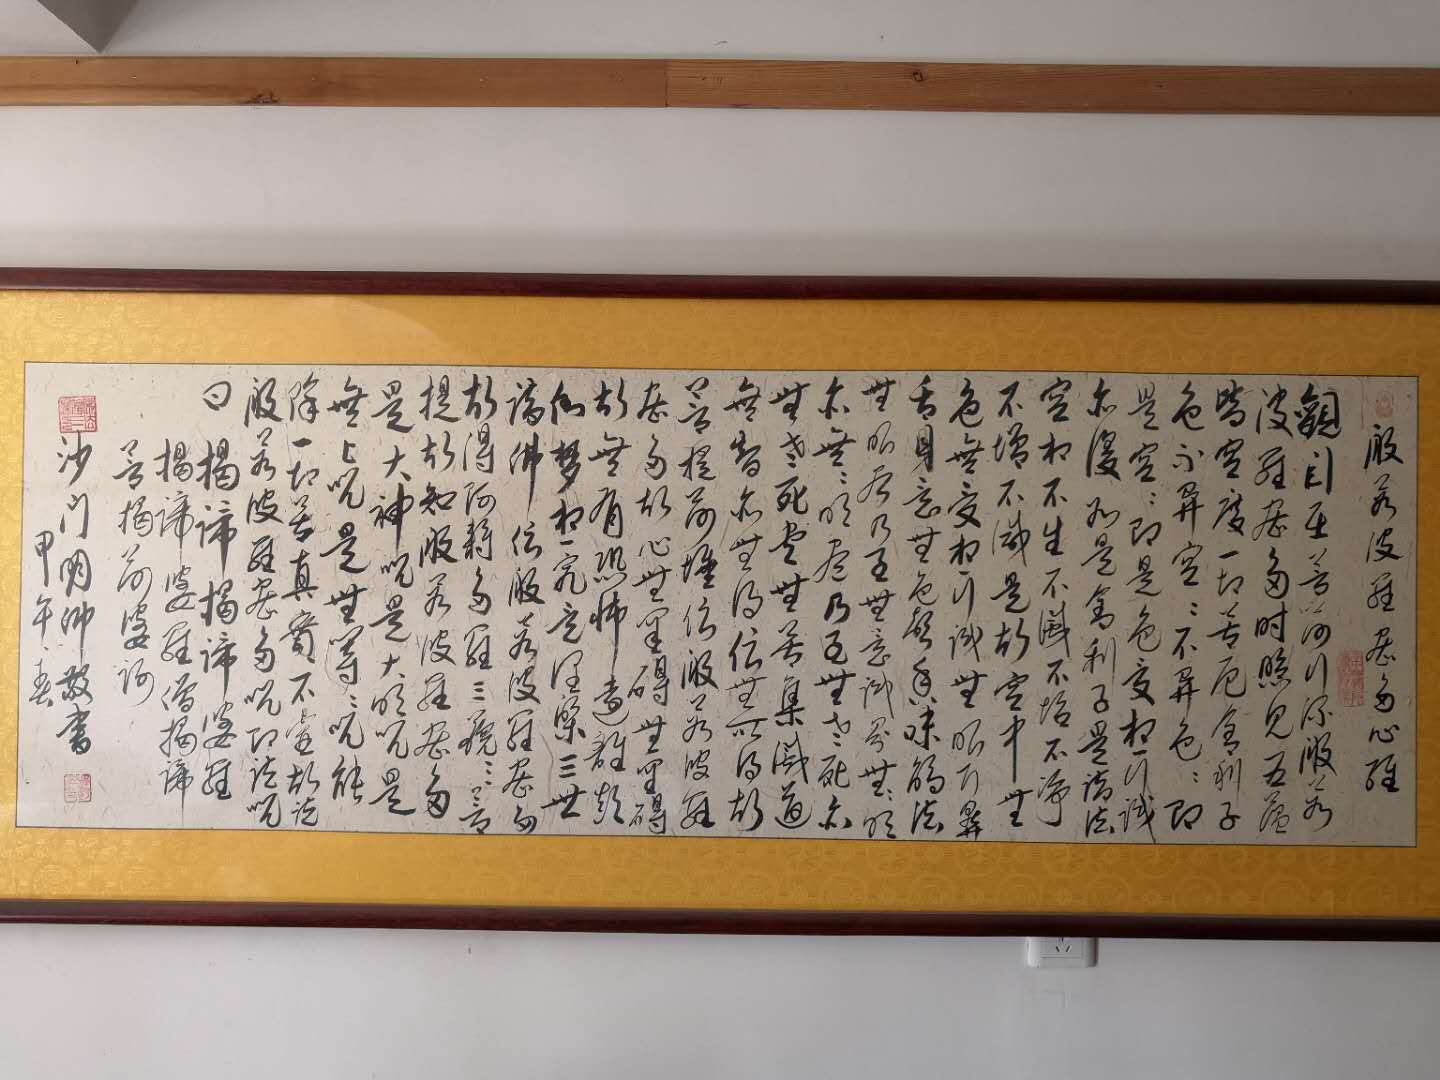 般若波羅密多心經
觀自在菩薩行深般若
波羅密多時照見五蘊
皆空度一切苦厄舍利子
色不異空空不異色色即
是空空即是色受想行識
亦復如是舍利子是諸法
空相不生不滅不垢不淨
不增不減是故空中無
色無受想行識無眼耳鼻
舌身意無色聲香味觸法
無眼界乃至無意識界無無明
亦無無明盡乃至無老死亦
無老死盡無苦集滅道
無智亦無得以無所得故
菩提薩埵依般若波羅
密多故心無罣礙無罣礙
故無有恐怖遠離顛
倒夢想究竟涅槃三世
諸佛依般若波羅密多
故得阿耨多羅三藐三菩
提故知般若波羅密多
是大神咒是大明咒是
無上咒是無等等咒能
除一切苦真實不虛故說
般若波羅密多咒即說咒
曰 揭諦揭諦婆羅
揭諦婆羅僧揭諦
菩揭薩婆訶
沙門 敬書
甲午春